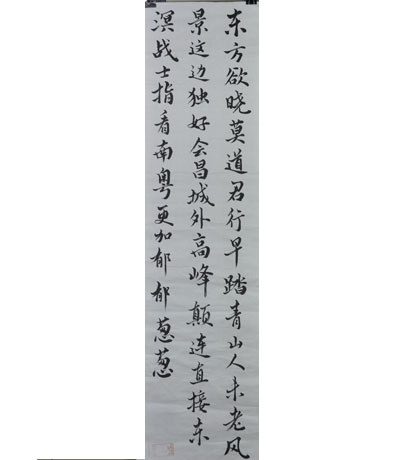 东方欲晓莫道君行早踏青山人未老风
景这边独好会昌城外高峰颠连直接东
溟战士指看南粤更加郁郁葱葱